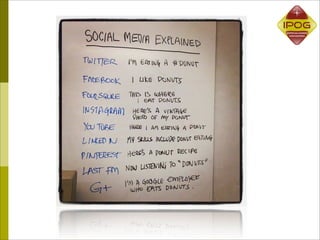 IPOG
SOCIAL MEDIA EXPLAINED
TWITTER I'M EATING A #DONUT
FACEBOOK I LIKE DONUTS
FOURSQUARE THIS IS WHERE
I EAT DONUTS
INSTAGRAM HERE'S A VINTAGE
PHOTO OF MY DONUT
YOU TUBE HERE I AM EATING A DONUT
LINKED IN MY SKILLS INCLUDE DONUT EATING
PINTEREST HERE'S A DONUT RECIPE
LAST FM NOW LISTENING TO "DONUTS"
G+ I'M A GOOGLE EMPLOYEE
WHO EATS DONUTS.